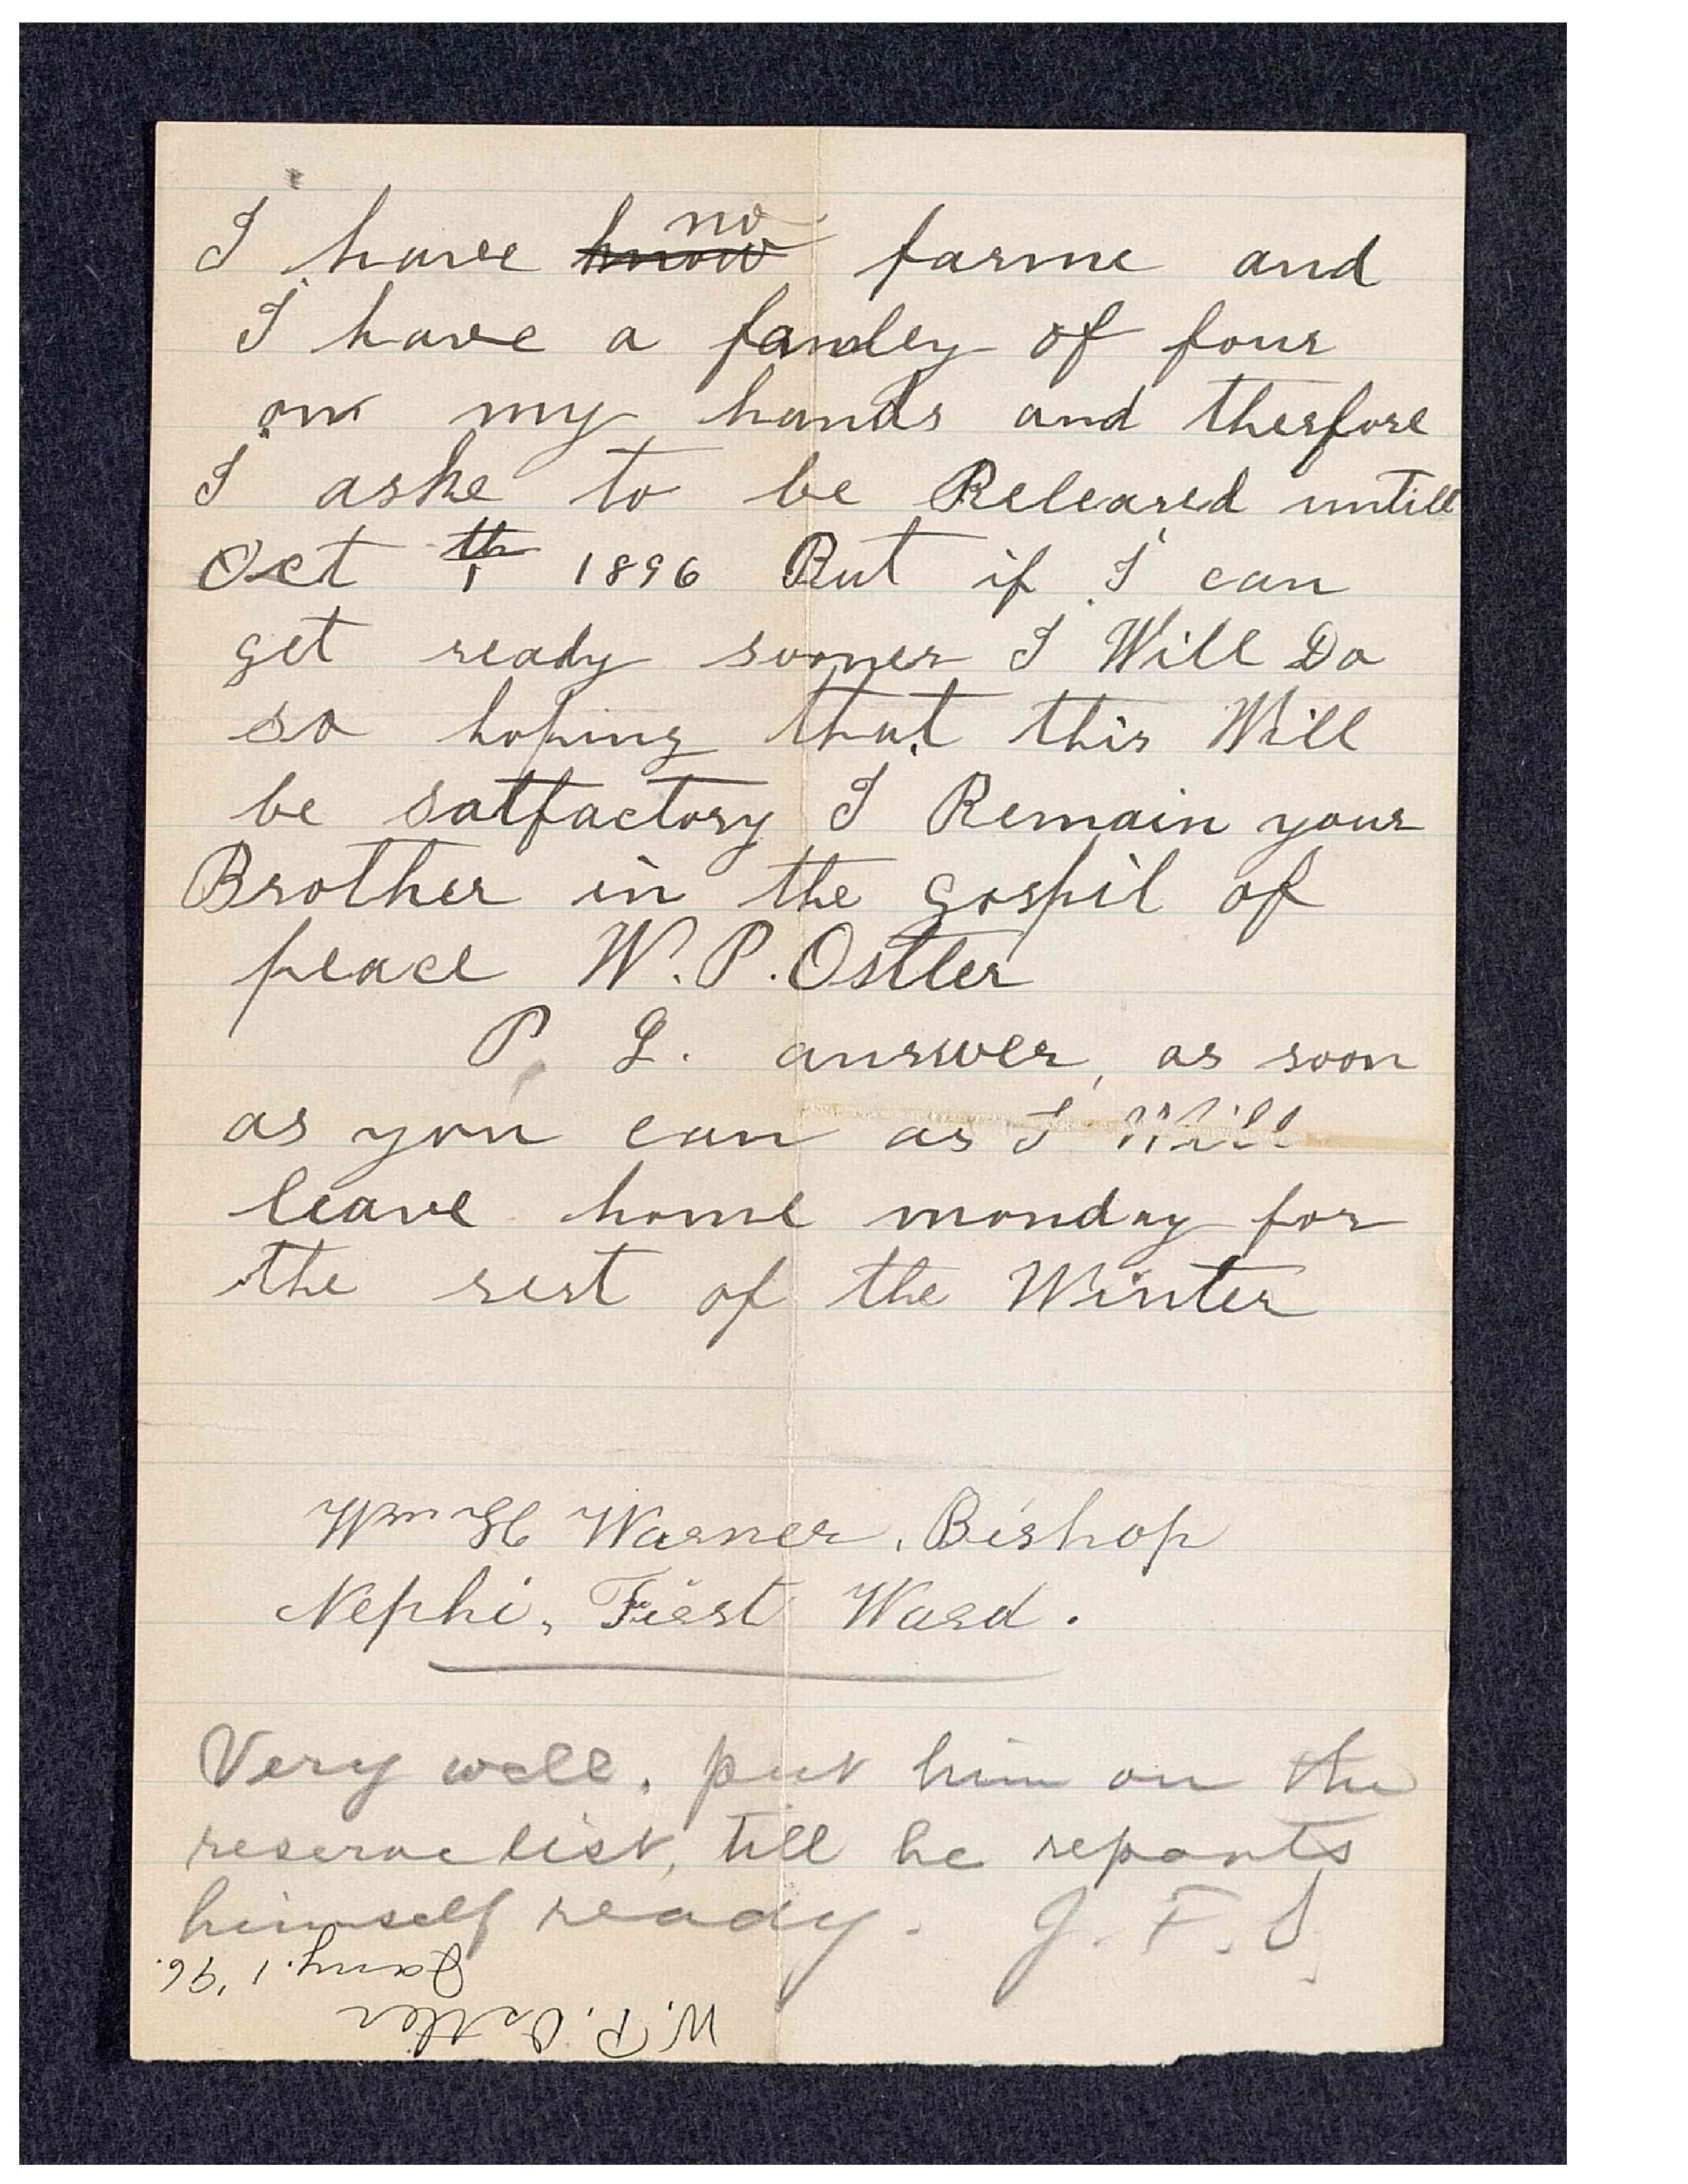 I have know no farme and
I have a famley of four
on my hands and therfore
I aske to be Released untill
Oct 1th 1896 But if I can
get ready sooner I Will Do
so hoping that this Will
be satfactory I Remain your
Brother in the gospil of
peace W. P. Ostler
P. S. answer, as soon
as you can as I Will
leave home monday for
the rest of the Winter
Wm H Warner, Bishop
Nephi, First Ward.
Very well, put him on the
reserve list, till he reports
himself ready. J. F. S.
W. P. Ostler
Jany. 1 '96.